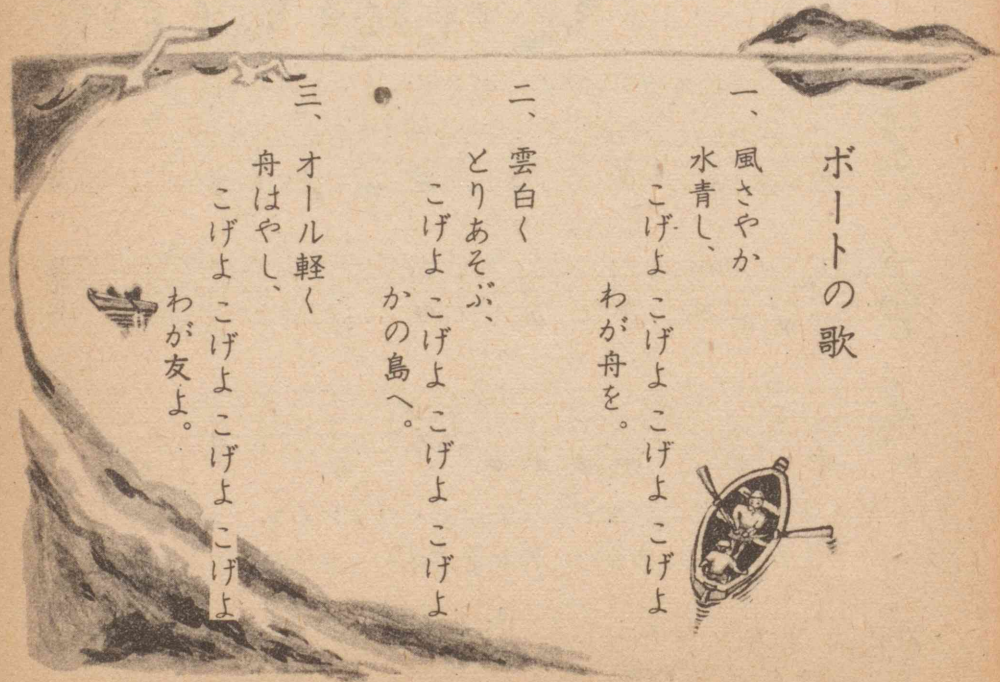 ボートの歌
一、風さやか
水青し、
こげよ こげよ こげよ こげよ
わが舟を。
二、雲白く
とりあそぶ、
こげよ こげよ こげよ こげよ
かの島へ。
三、オール軽く
舟はやし、
こげよ こげよ こげよ こげよ
わが友よ。